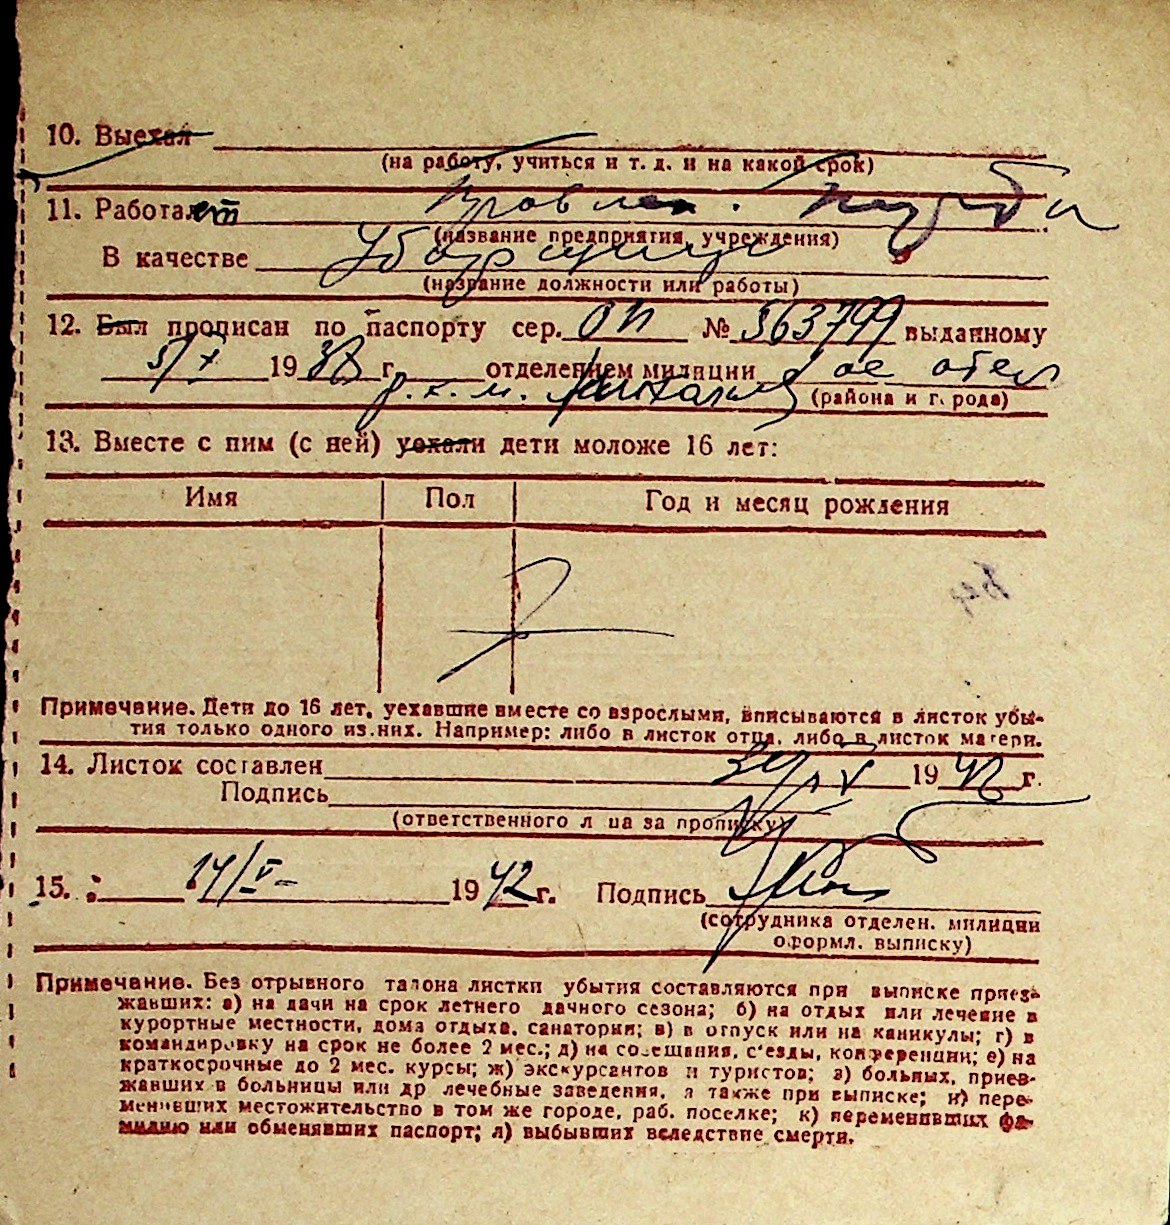 10. Выехал
(на работу, учиться и т. д. и на какой срок)
11. Работает
(название предприятия, учреждения)
В качестве Уборщицы
(название должности или работы)
12. Был прописан по паспорту сер. ОП № 563799 выданному
5/X 1938 г. отделением милиции ое отел
р.к.м.
(района и города)
13. Вместе с ним (с ней) уехали дети моложе 16 лет:
Имя Пол Год и месяц рождения
Примечание. Дети до 16 лет, уехавшие вместе со взрослыми, вписываются в листок убы-
тия только одного из них. Например: либо в листок отца, либо в листок матери.
14. Листок составлен 1942 г.
Подпись
(ответственного лица за прописку)
15. 14/V- 1942 г. Подпись
(сотрудника отделен. милиции
оформл. выписку)
Примечание. Без отрывного талона листки убытия составляются при выписке приез-
жавших: а) на дачи на срок летнего дачного сезона; б) на отдых или лечение в
курортные местности, дома отдыха, санатории; в) в отпуск или на каникулы; г) в
командировку на срок не более 2 мес.; д) на совещания, с'езды, конференции; е) на
краткосрочные до 2 мес. курсы; ж) экскурсантов и туристов; з) больных, приез-
жавших в больницы или др лечебные заведения, а также при выписке; и) пере-
менивших местожительство в том же городе, раб. поселке; к) переменивших фа-
милию или обменявших паспорт; л) выбывших вследствие смерти.